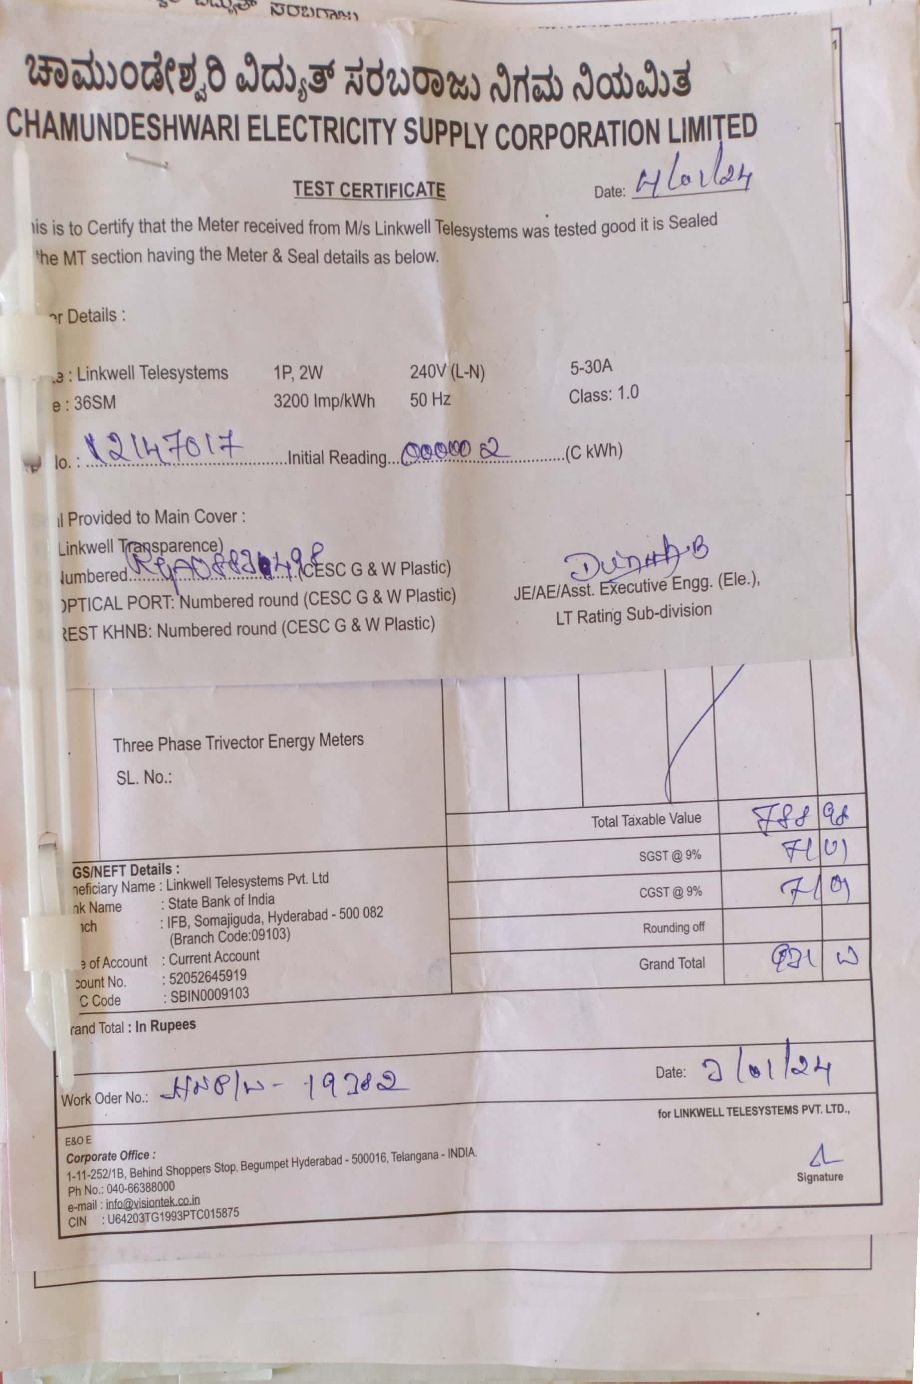 ಚಾಮುಂಡೇಶ್ವರಿ ವಿದ್ಯುತ್ ಸರಬರಾಜು ನಿಗಮ ನಿಯಮಿತ
CHAMUNDESHWARI ELECTRICITY SUPPLY CORPORATION LIMITED
TEST CERTIFICATE
Date: 4/01/24
is is to Certify that the Meter received from M/s Linkwell Telesystems was tested good it is Sealed
the MT section having the Meter & Seal details as below.
r Details :
: Linkwell Telesystems 1P, 2W 240V (L-N) 5-30A
e : 36SM 3200 Imp/kWh 50 Hz Class: 1.0
No. : 12147017 Initial Reading 000002 (C kWh)
l Provided to Main Cover :
Linkwell Transparence)
Numbered (CESC G & W Plastic)
OPTICAL PORT: Numbered round (CESC G & W Plastic)
REST KHNB: Numbered round (CESC G & W Plastic)
JE/AE/Asst. Executive Engg. (Ele.),
LT Rating Sub-division
Three Phase Trivector Energy Meters
SL. No.:
Total Taxable Value 788 98
SGST @ 9% 71 01
CGST @ 9% 71 01
Rounding off
Grand Total 931 00
GS/NEFT Details :
neficiary Name : Linkwell Telesystems Pvt. Ltd
nk Name : State Bank of India
nch : IFB, Somajiguda, Hyderabad - 500 082
(Branch Code:09103)
e of Account : Current Account
count No. : 52052645919
C Code : SBIN0009103
rand Total : In Rupees
Work Oder No.: 19382
Date: 2/01/24
for LINKWELL TELESYSTEMS PVT. LTD.,
Signature
E&O E
Corporate Office :
1-11-252/1B, Behind Shoppers Stop, Begumpet Hyderabad - 500016, Telangana - INDIA.
Ph No.: 040-66388000
e-mail : info@visiontek.co.in
CIN : U64203TG1993PTC015875